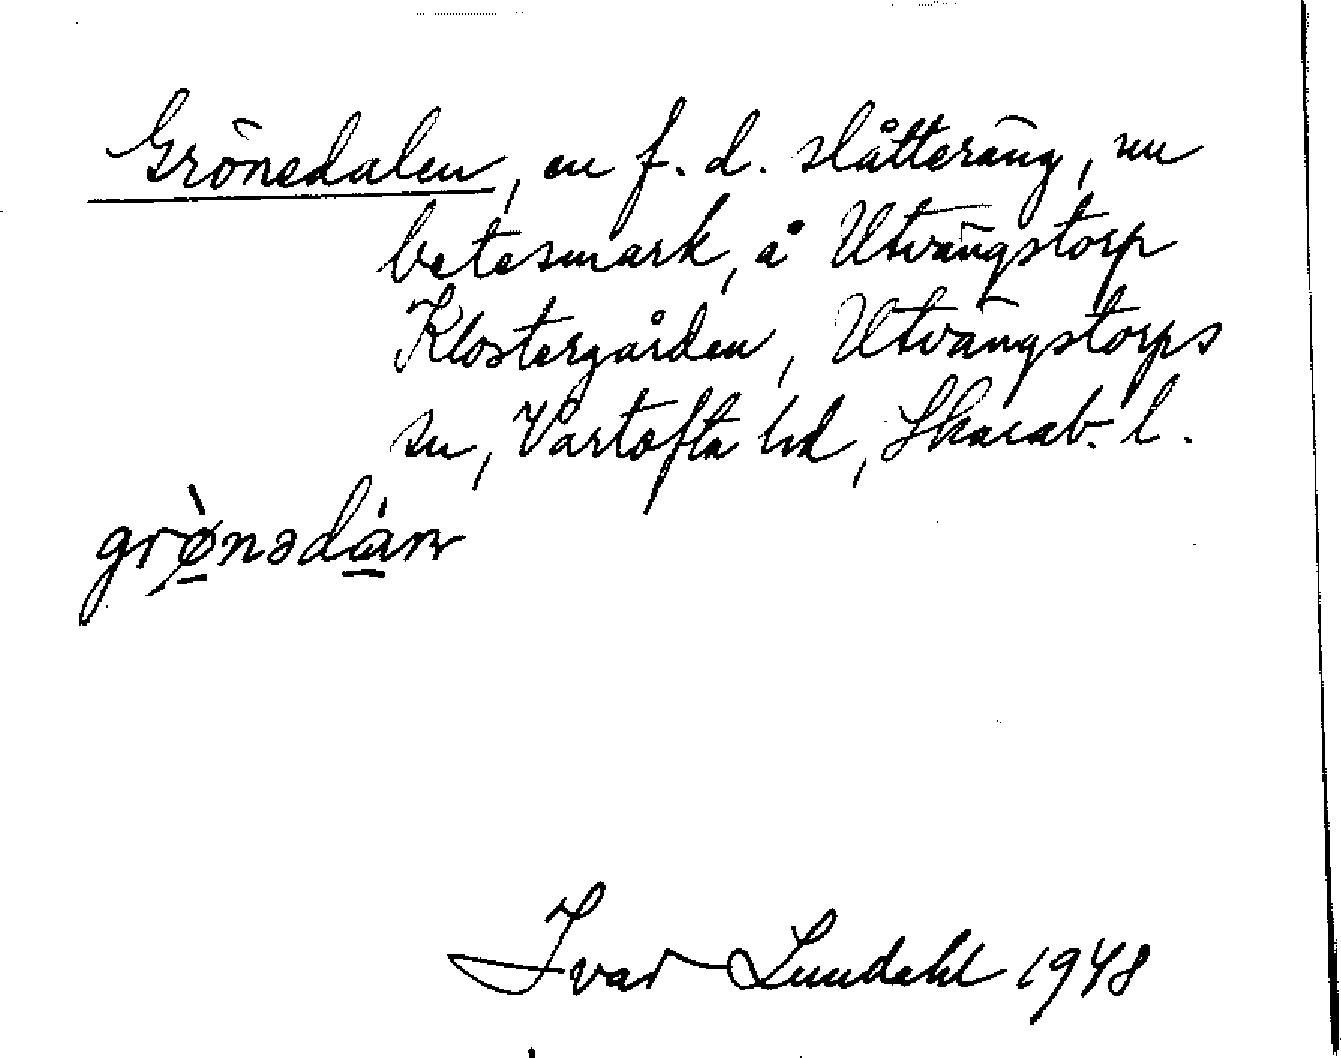 Grönedalen, en f. d. slåtteräng, nu
betesmark, å Utvängstorp
Klostergården, Utvängstorps
sn, Vartofta hd, Skarab. l.
grø̀nədàn
Ivar Lundahl 1948